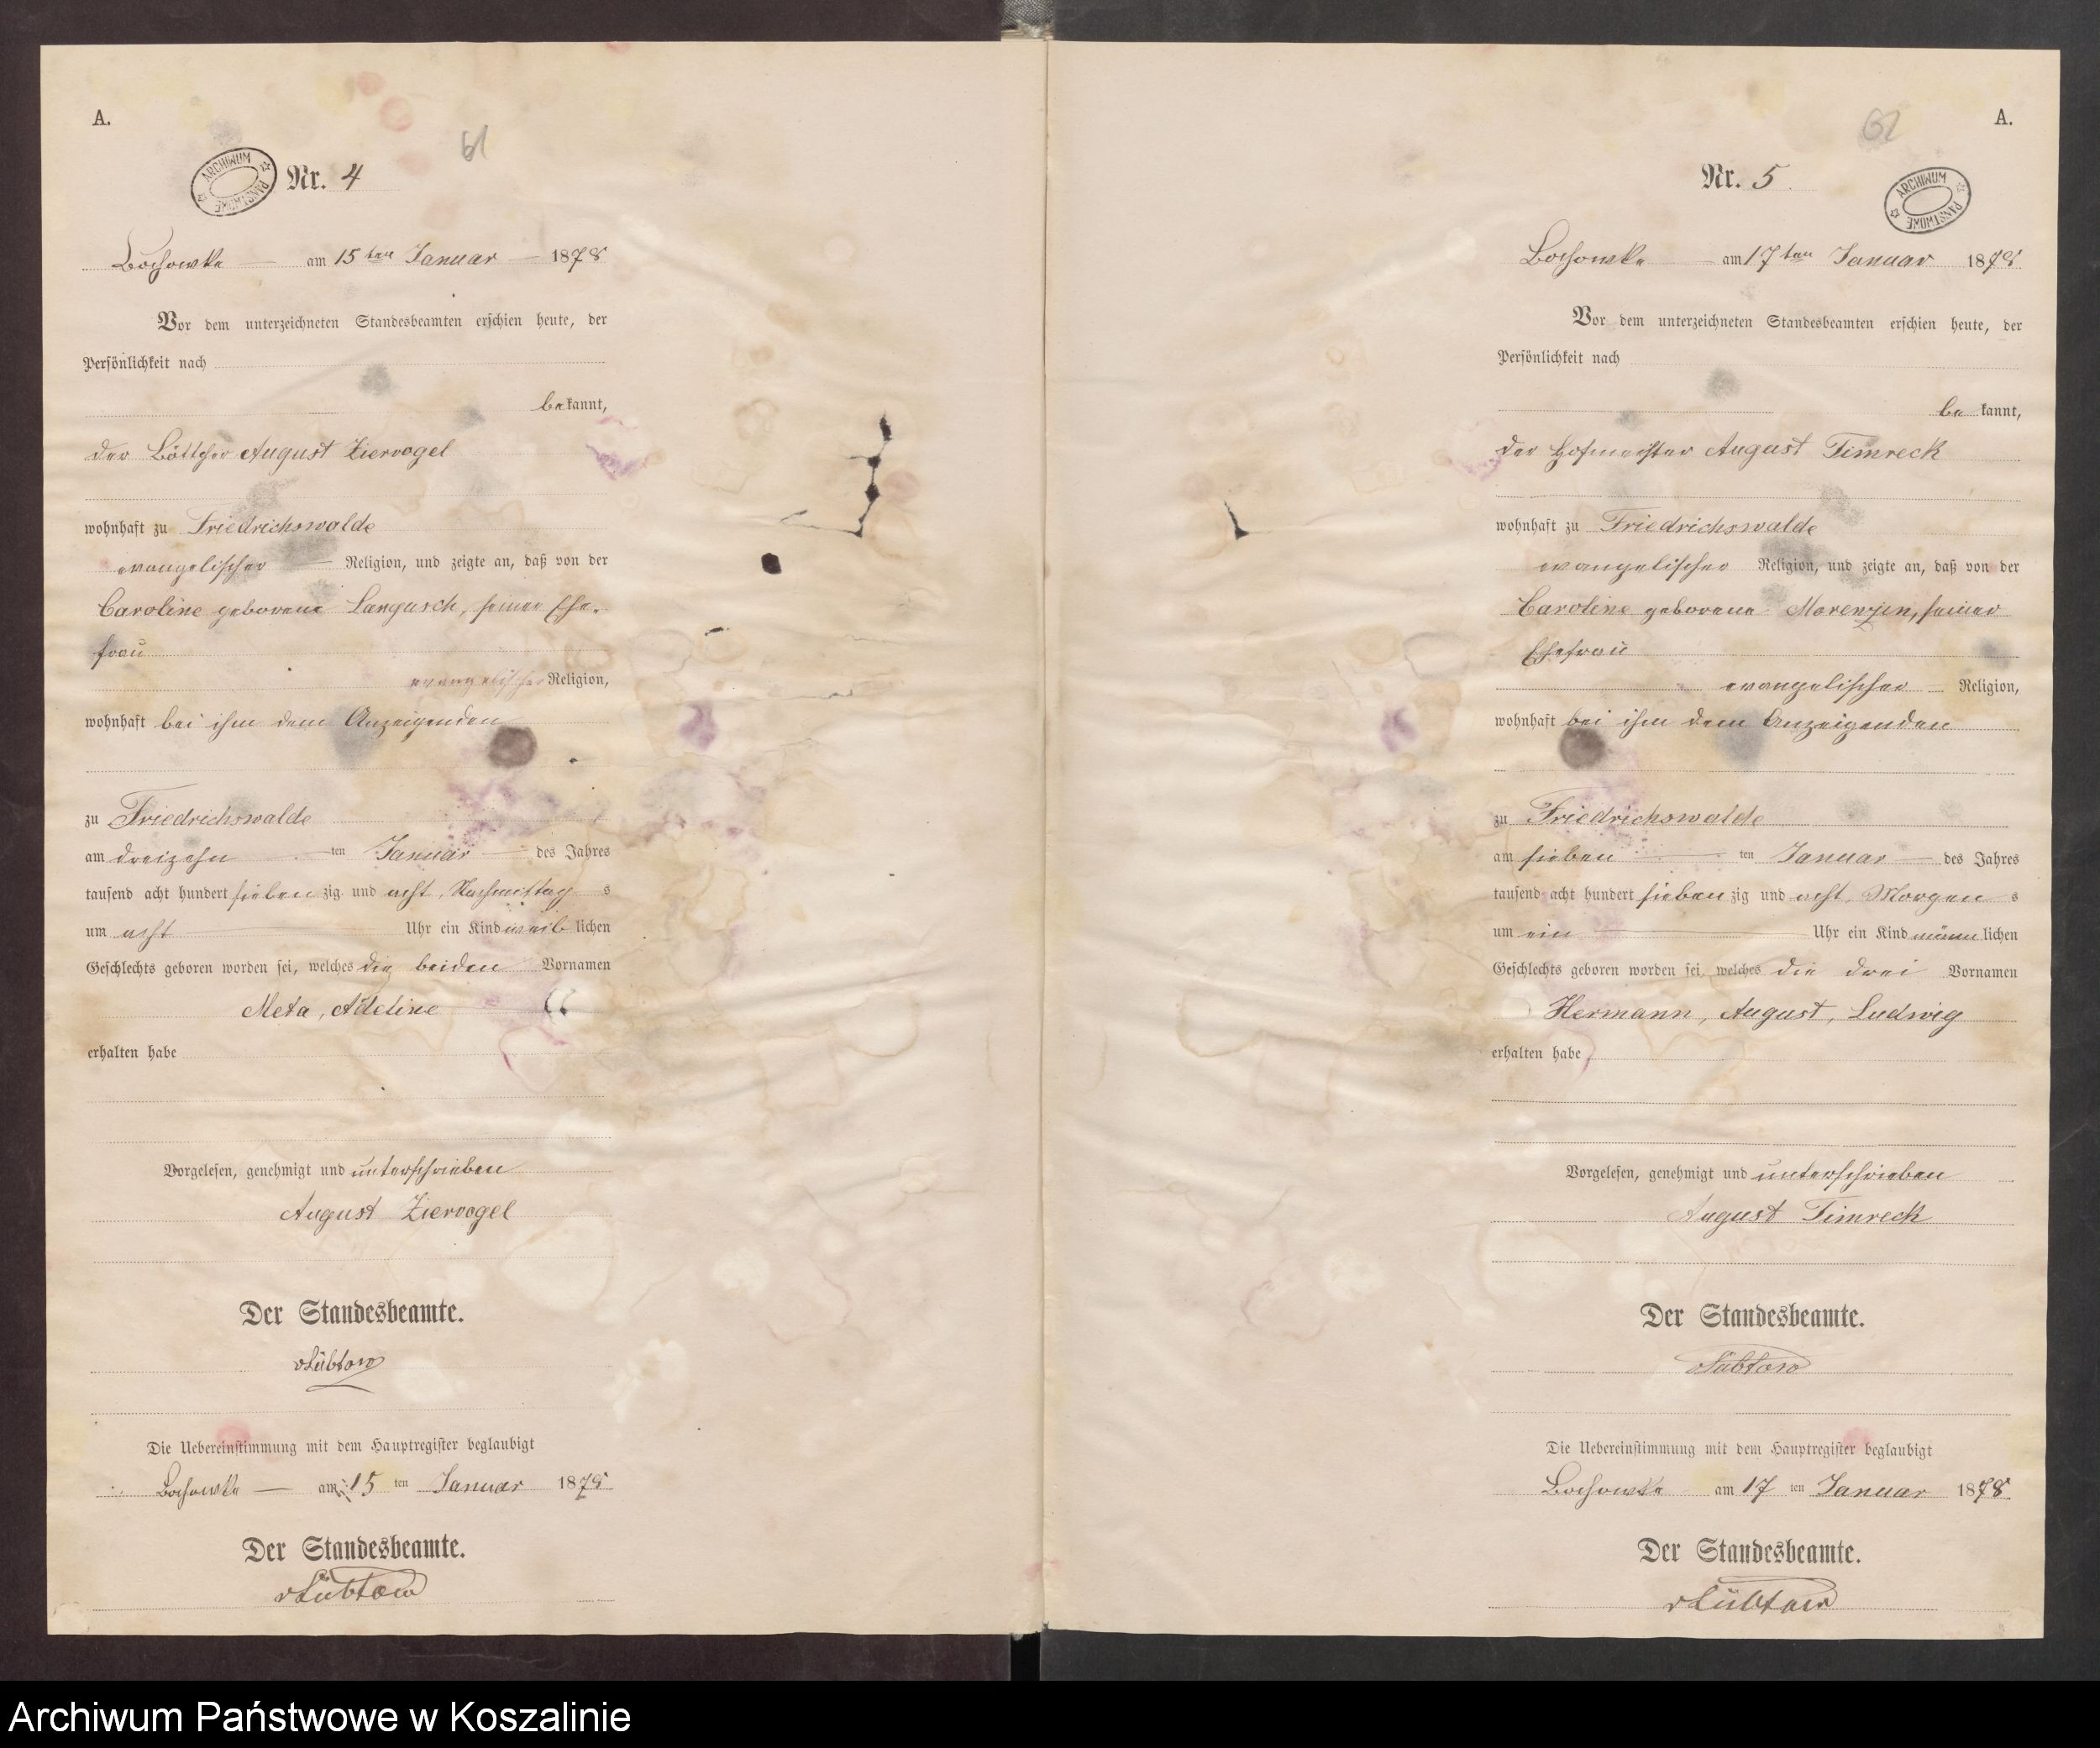 A.
61
ARCHIWUM PAŃSTWOWE
Nr. 4
Bochowke am 15ten Januar 1878
Vor dem unterzeichneten Standesbeamten erschien heute, der
Persönlichkeit nach
bekannt,
der Böttcher August Ziervogel
wohnhaft zu Friedrichswalde
evangelischer Religion, und zeigte an, daß von der
Caroline geborene Langusch, seiner Ehe-
frau
evangelischer Religion,
wohnhaft bei ihm dem Anzeigenden
zu Friedrichswalde
am dreizehn ten Januar des Jahres
tausend acht hundert siebenzig und acht, Nachmittags
um acht Uhr ein Kind weiblichen
Geschlechts geboren worden sei, welches die beiden Vornamen
Meta, Adeline
erhalten habe
Vorgelesen, genehmigt und unterschrieben
August Ziervogel
Der Standesbeamte.
vLübtow
Die Uebereinstimmung mit dem Hauptregister beglaubigt
Bochowke am 15 ten Januar 1878
Der Standesbeamte.
vLübtow
62
A.
Nr. 5
ARCHIWUM PAŃSTWOWE
Bochowke am 17ten Januar 1878
Vor dem unterzeichneten Standesbeamten erschien heute, der
Persönlichkeit nach
bekannt,
der Hofmeister August Timreck
wohnhaft zu Friedrichswalde
evangelischer Religion, und zeigte an, daß von der
Caroline geborene seiner
Ehefrau
evangelischer Religion,
wohnhaft bei ihm dem Anzeigenden
zu Friedrichswalde
am sieben ten Januar des Jahres
tausend acht hundert siebenzig und acht, Morgens
um ein Uhr ein Kind männlichen
Geschlechts geboren worden sei, welches die drei Vornamen
Hermann, August, Ludwig
erhalten habe
Vorgelesen, genehmigt und unterschrieben
August Timreck
Der Standesbeamte.
vLübtow
Die Uebereinstimmung mit dem Hauptregister beglaubigt
Bochowke am 17 ten Januar 1878
Der Standesbeamte.
vLübtow
Archiwum Państwowe w Koszalinie